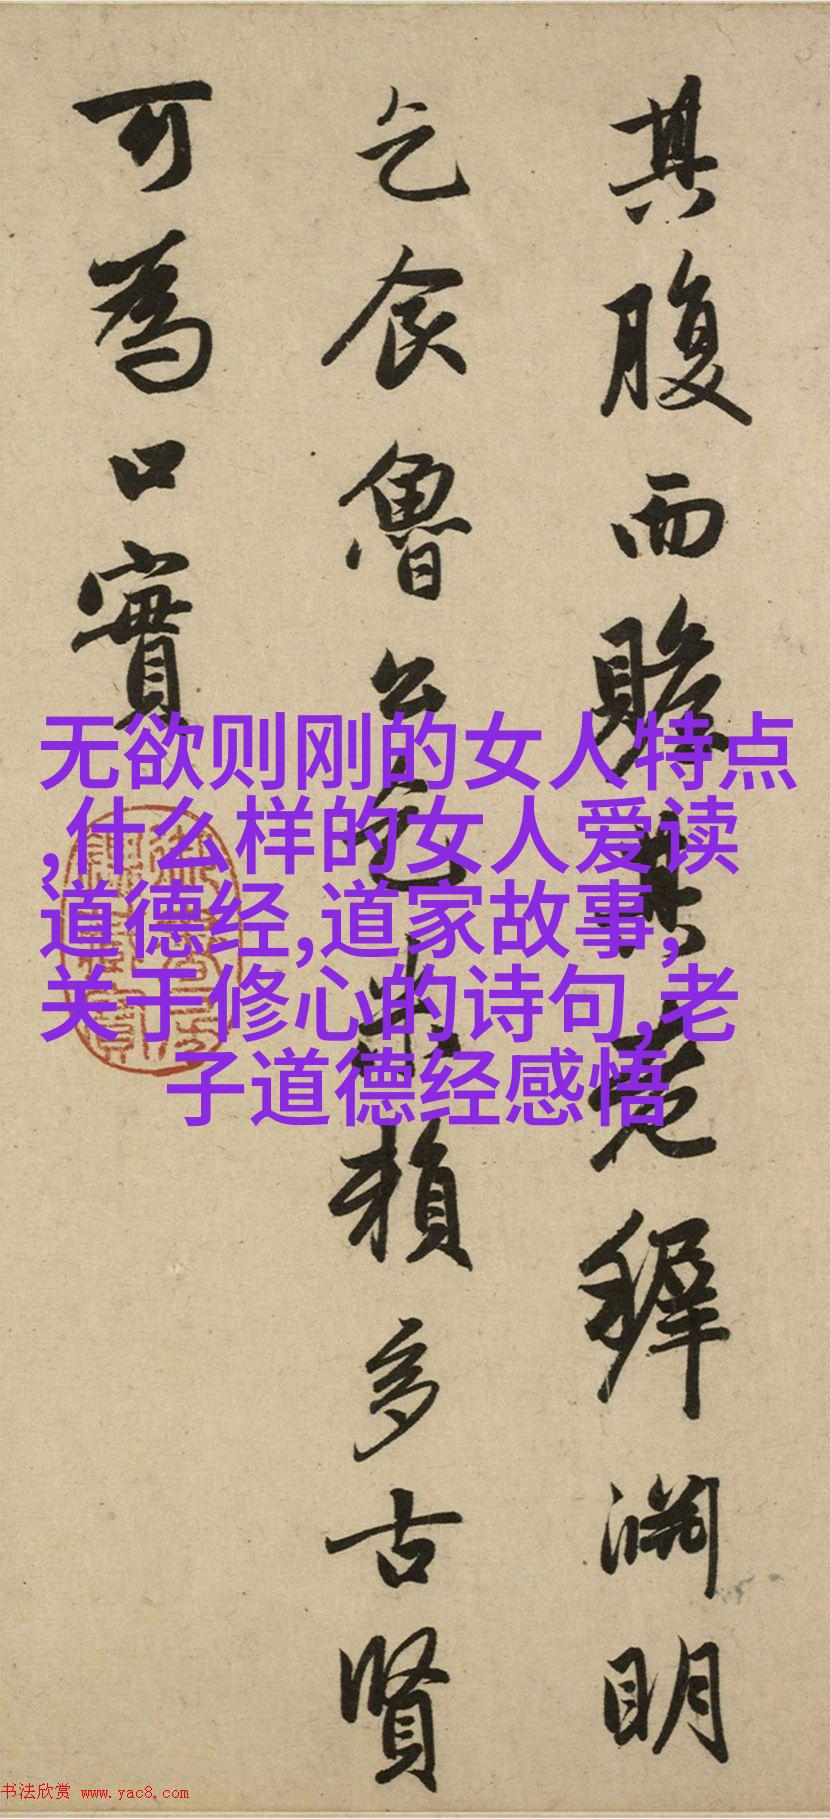 其腹而贍其穉淵明
乞食魯公乞米賴多古賢
可為口實
无欲则刚的女人特点
,什么样的女人爱读
道德经,道家故事,
关于修心的诗句,老
子道德经感悟
书法欣赏 www.yac8.com